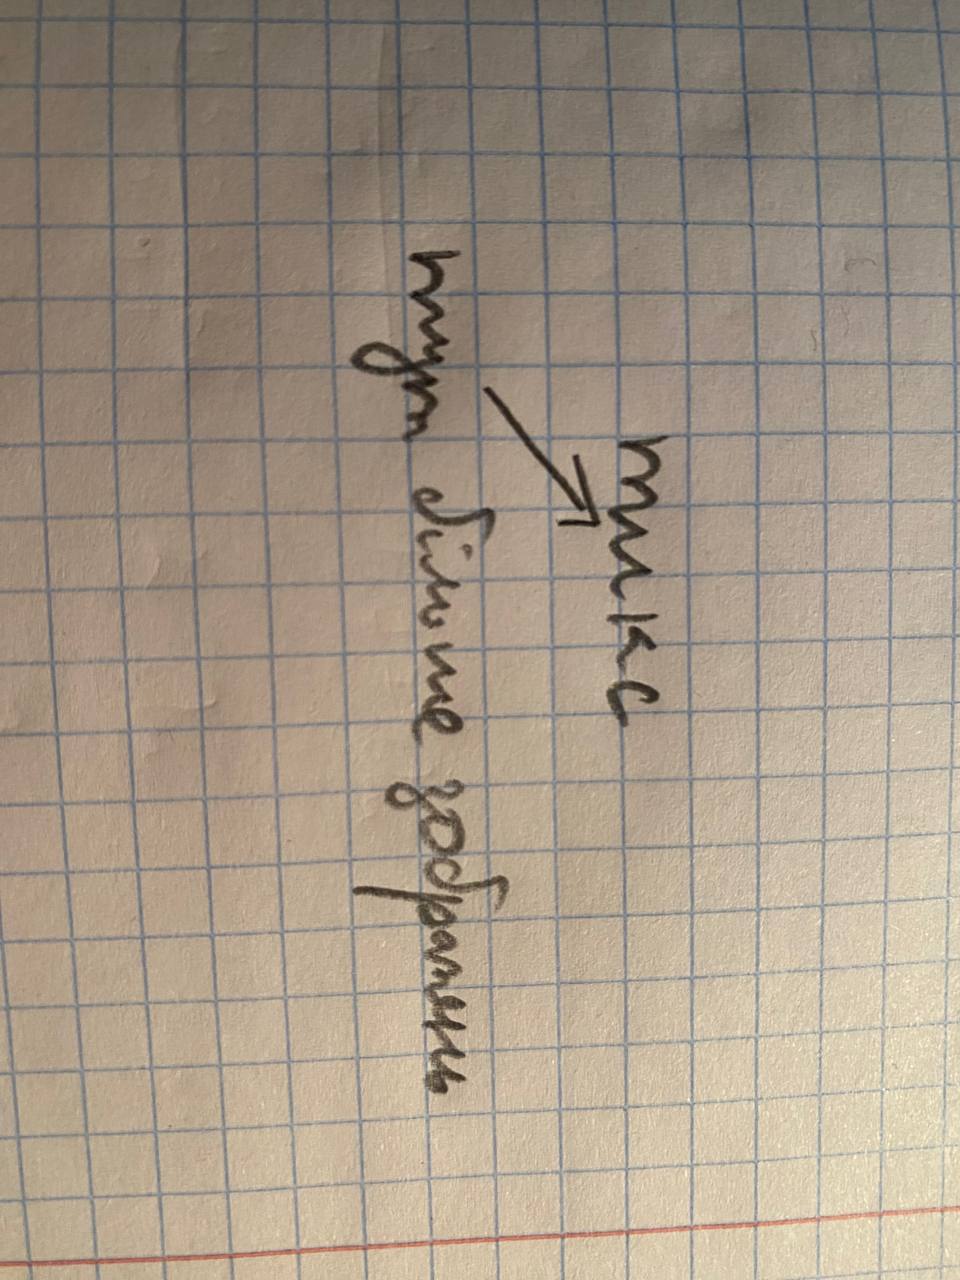 тикс
тут більше зображень